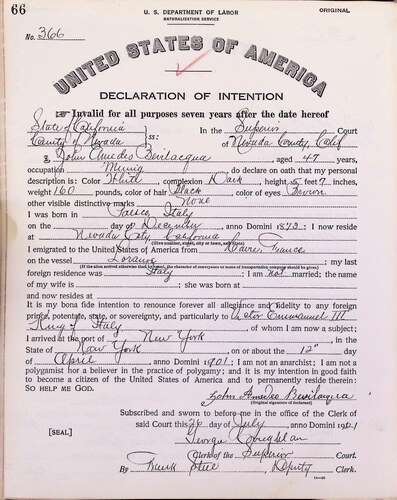 66
U. S. DEPARTMENT OF LABOR
NATURALIZATION SERVICE
ORIGINAL
No. 366
UNITED STATES OF AMERICA
DECLARATION OF INTENTION
Invalid for all purposes seven years after the date hereof
State of California
County of Nevada ss: In the Superior Court of Nevada County, Calif
I, John Amedeo Bevilacqua aged 47 years,
occupation Mining, do declare on oath that my personal
description is: Color White, complexion Dark, height 5 feet 9 inches,
weight 160 pounds, color of hair Black, color of eyes Brown
other visible distinctive marks None
I was born in Italy
on the day of December, anno Domini 1873; I now reside
at Nevada City California
(Give number, street, city or town, and State)
I emigrated to the United States of America from Havre, France
on the vessel Loraine; my last
(If the alien arrived otherwise than by vessel, the character of conveyance or name of transportation company should be given)
foreign residence was Italy; I am not married; the name
of my wife is; she was born at
and now resides at
It is my bona fide intention to renounce forever all allegiance and fidelity to any foreign
prince, potentate, state, or sovereignty, and particularly to Victor Emmanuel III
King of Italy, of whom I am now a subject;
I arrived at the port of New York, in the
State of New York, on or about the 12" day
of April, anno Domini 1901; I am not an anarchist; I am not a
polygamist nor a believer in the practice of polygamy; and it is my intention in good faith
to become a citizen of the United States of America and to permanently reside therein:
SO HELP ME GOD.
John Amedeo Bevilacqua
(Original signature of declarant)
Subscribed and sworn to before me in the office of the Clerk of
[SEAL] said Court this 26 day of July, anno Domini 1921
George Coughlan
Clerk of the Superior Court.
By Frank Steel, Deputy Clerk.